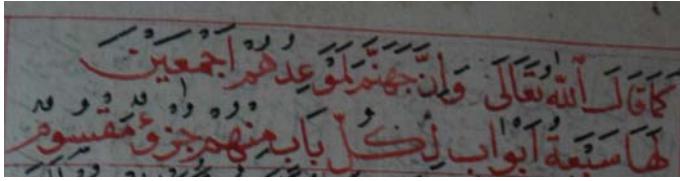 كَمَا قَالَ اللّٰهُ تَعَالَى وَاِنَّ جَهَنَّمَ لَمَوْعِدُهُمْ اَجْمَعِيْنَ
لَهَا سَبْعَةُ اَبْوَابٍ لِكُلِّ بَابٍ مِنْهُمْ جُزْءٌ مَقْسُوْمٌ